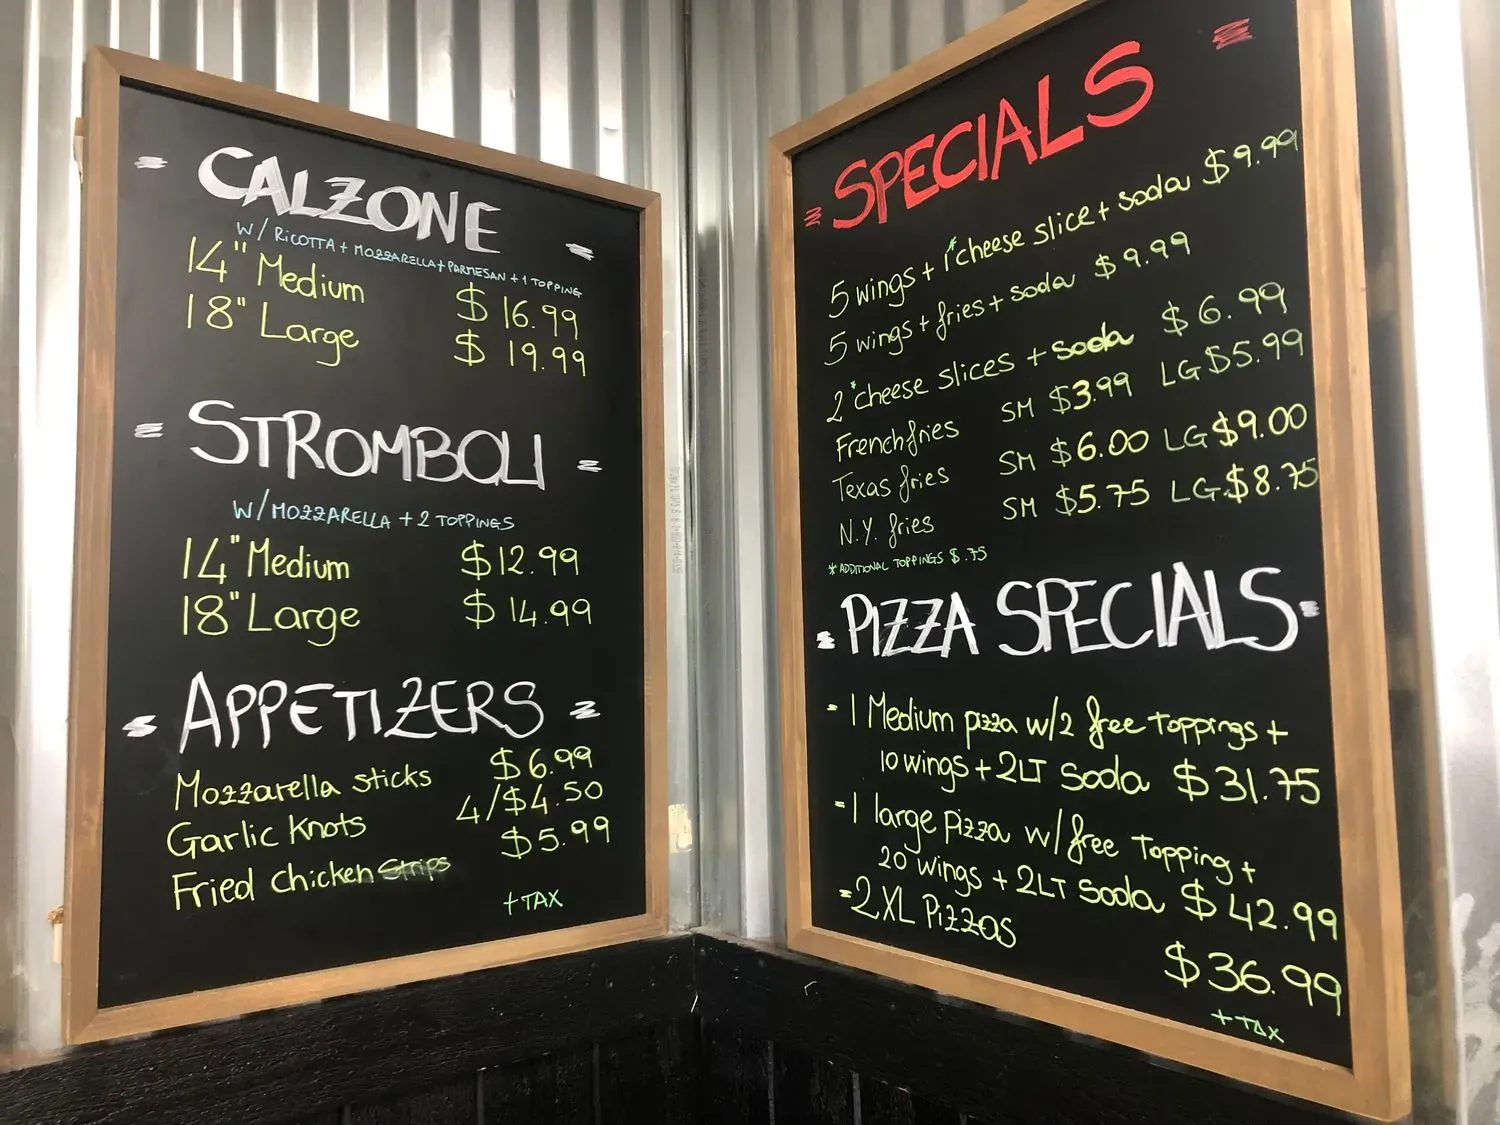 CALZONE
W/ RICOTTA + MOZZARELLA + PARMESAN + 1 TOPPING
14" Medium $16.99
18" Large $19.99
STROMBOLI
W/MOZZARELLA + 2 TOPPINGS
14" Medium $12.99
18" Large $14.99
APPETIZERS
Mozzarella sticks $6.99
Garlic Knots 4/$4.50
Fried chicken strips $5.99
+TAX
SPECIALS
5 wings + 1 *cheese slice + soda $9.99
5 wings + fries + soda $9.99
2 *cheese slices + soda $6.99
French fries SM $3.99 LG $5.99
Texas fries SM $6.00 LG $9.00
N.Y. fries SM $5.75 LG $8.75
*ADDITIONAL TOPPINGS $.75
PIZZA SPECIALS
- 1 Medium pizza w/2 free toppings +
10 wings + 2LT Soda $31.75
- 1 large pizza w/free topping +
20 wings + 2LT Soda $42.99
- 2 XL Pizzas
$36.99
+TAX